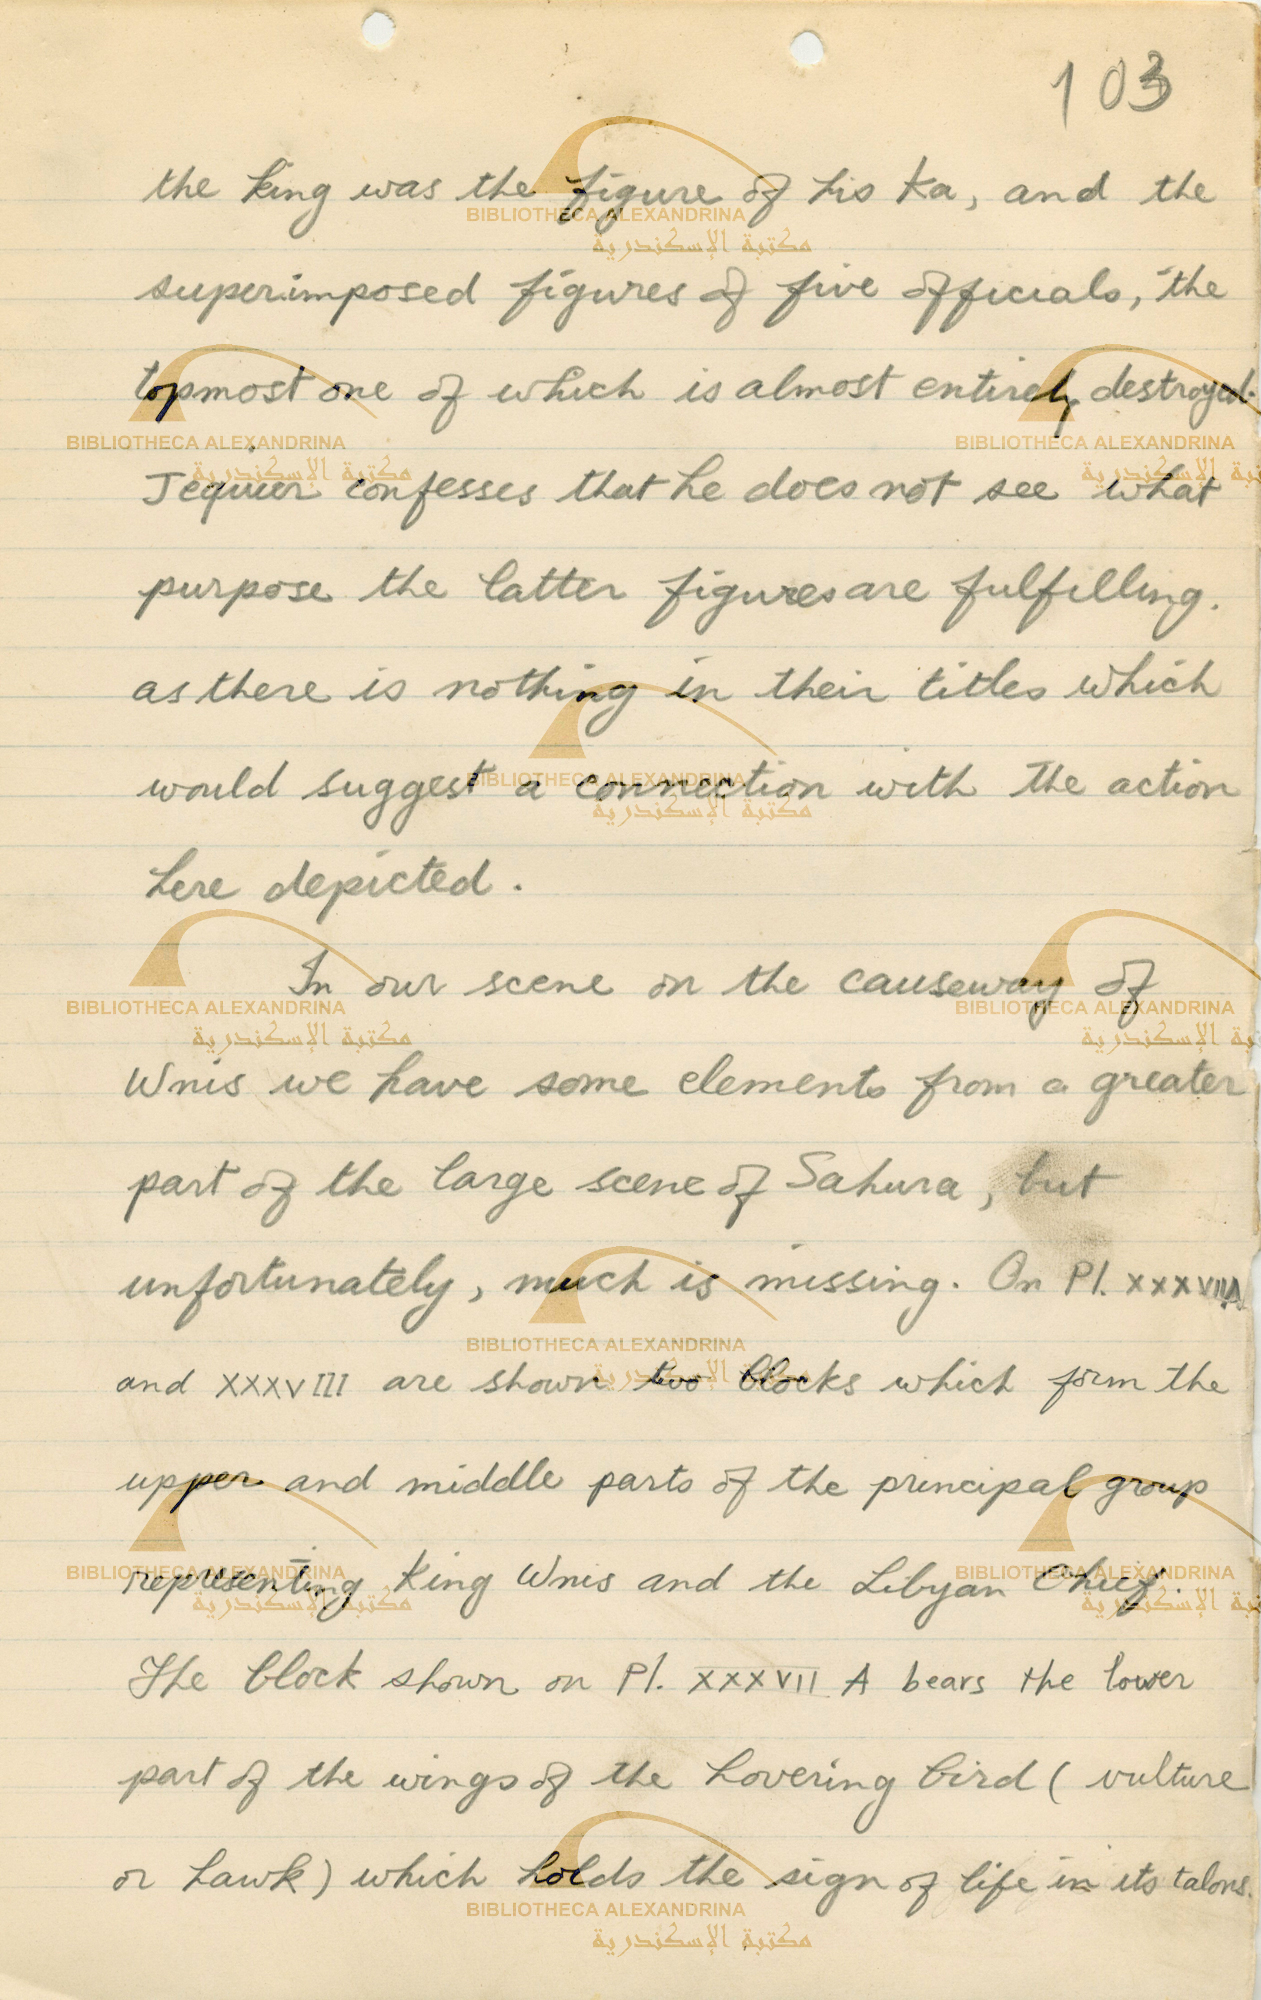 103
the king was the figure of his Ka, and the
superimposed figures of five officials, the
topmost one of which is almost entirely destroyed.
Jequier confesses that he does not see what
purpose the latter figures are fulfilling.
as there is nothing in their titles which
would suggest a connection with the action
here depicted.
In our scene on the causeway of
Wnis we have some elements from a greater
part of the large scene of Sahura, but
unfortunately, much is missing. On Pl. XXXVIIA
and XXXVIII are shown two blocks which form the
upper and middle parts of the principal group
representing King Wnis and the Libyan Chief.
The block shown on Pl. XXXVII A bears the lower
part of the wings of the hovering bird ( vulture
or hawk) which holds the sign of life in its talons.
BIBLIOTHECA ALEXANDRINA
مكتبة الإسكندرية